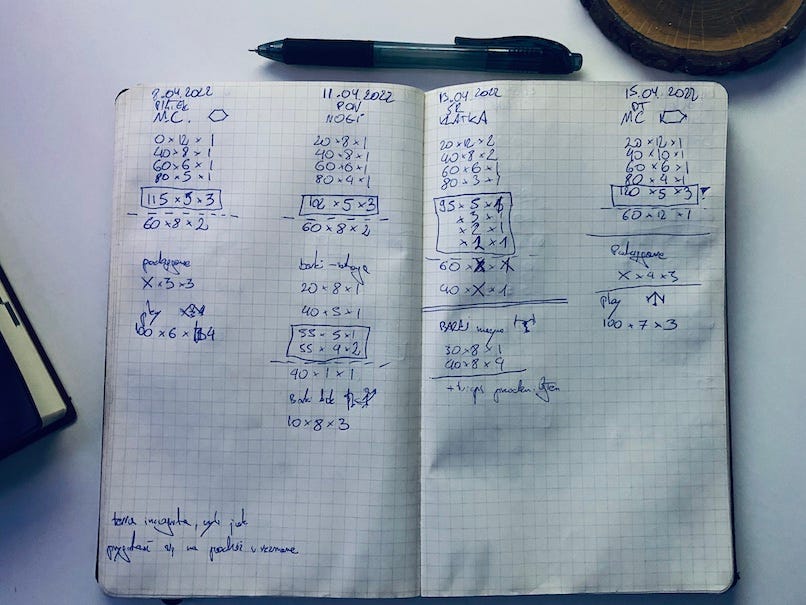 8.04.2022
PIĄTEK
M.C.
0 × 12 × 1
40 × 8 × 1
60 × 6 × 1
80 × 5 × 1
115 × 5 × 3
60 × 8 × 2
podciągane
X × 3 × 3
plecy
100 × 6 × 4
terra incognita, czyli jak
przygotować się na podróż w nieznane
11.04.2022
PON
NOGI
20 × 8 × 1
40 × 8 × 1
60 × 6 × 1
80 × 4 × 1
102 × 5 × 3
60 × 8 × 2
barki
20 × 8 × 1
40 × 5 × 1
55 × 5 × 1
55 × 4 × 2
40 × 1 × 1
Barki bok
10 × 8 × 3
13.04.2022
ŚR
KLATKA
20 × 12 × 2
40 × 8 × 2
60 × 6 × 1
80 × 3 × 1
95 × 5 × 1
× 3 × 1
× 2 × 1
× 2 × 1
60 × X × 1
40 × X × 1
BARKI
30 × 8 × 1
40 × 8 × 4
+ triceps
15.04.2022
PT
MC
20 × 12 × 1
40 × 10 × 1
60 × 6 × 1
80 × 4 × 1
120 × 5 × 3 !
60 × 12 × 1
Podciągane
X × 4 × 3
plecy
100 × 7 × 3